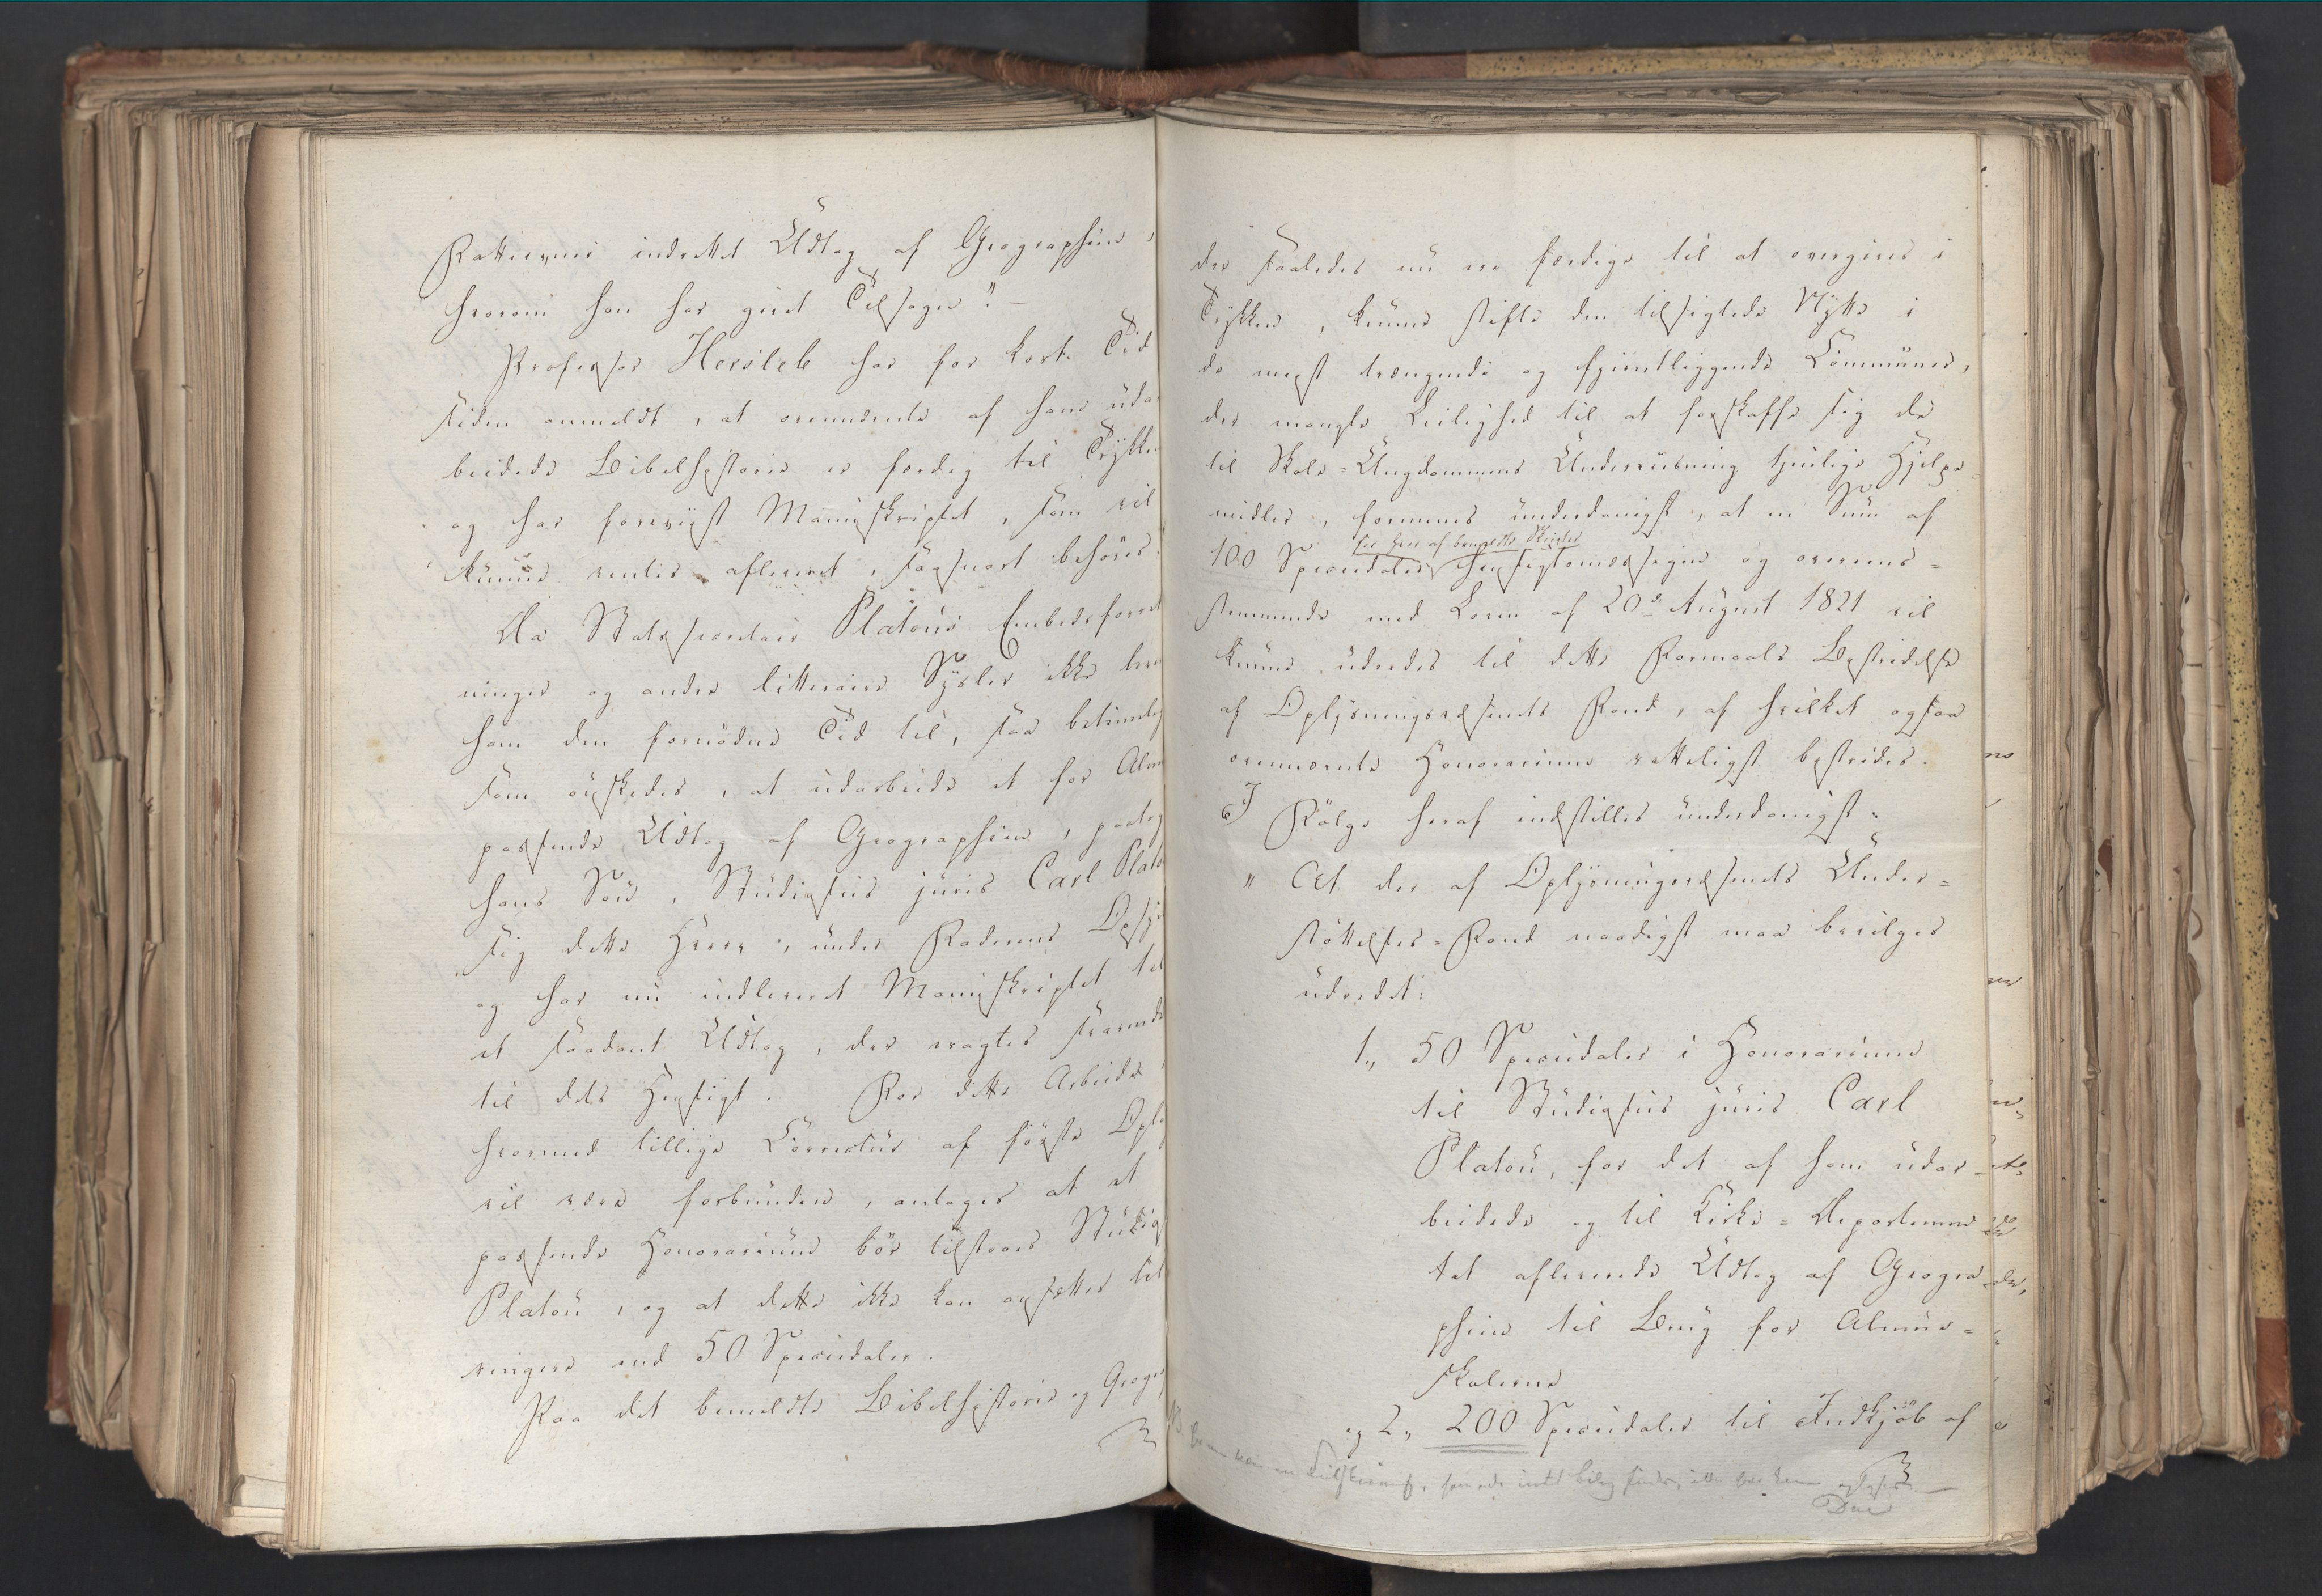 Fattievner indrettet Udtog af Geographien,
hvorom han har givet Tilsagn". —
Professor Hersleb har for kort Tid
siden anmeldt, at ovennævnte af ham udar
beidede Bibelhistorie er færdig til Trykken
og har foreviist Manuskriptet, som vil
kunne ventes afleveret, saasnart behøves.
Da Statssecretair Platous Embedsforret
ninger og andre litteraire Sysler ikke levn
ham den fornødne Tid til, saa betimelig
som ønskedes, at udarbeide et for Almu
passende Udtog af Geographien, paatog
hans Søn, Studiosus juris Carl Plato
sig dette Hverv, under Faderens Opsyn
og har nu indleveret Manuskriptet til
et saadant Udtog, der ansees svarende
til dets Hensigt. For dette Arbeide,
hvormed tillige Correctur af første Oplag
vil være forbunden, antages at et
passende Honorarium bør tilstaaes Studios
Platou, og at dette ikke kan ansættes til
ringere end 50 Speciedaler.
Paa det bemeldte Bibelhistorie og Geogra
der saaledes nu ere færdige til at overgives i
Trykken, kunne stifte den tilsigtede Nytte i
de meest trængende og fjerntliggende Communer,
der mangle Leilighed til at forskaffe sig de
til Skole-Ungdommens Underviisning tjenlige Hjelpe-
midler, formenes underdanigst, at en Sum af
til Kjøb af bemeldte Skrifter
100 Speciedaler hensigtsmæssigen og overeens-
stemmende med Loven af 20de August 1821 vil
kunne udredes til dette Formaals Bestridelse
af Oplysningsvæsenets Fond, af hvilket ogsaa
ovennævnte Honorarium retteligst bestrides.
I Følge heraf indstilles underdanigst:
" At der af Oplysningsvæsenets Under-
støttelses-Fond naadigst maa bevilges
udredet:
1., 50 Speciedaler i Honorarium
til Studiosus juris Carl
Platou, for det af ham udar-
beidede og til Kirke-Departemen
tet afleverede Udtog af Geogra
phien til Brug for Almue-
skolerne
og 2., 200 Speciedaler til Indkjøb af
Due